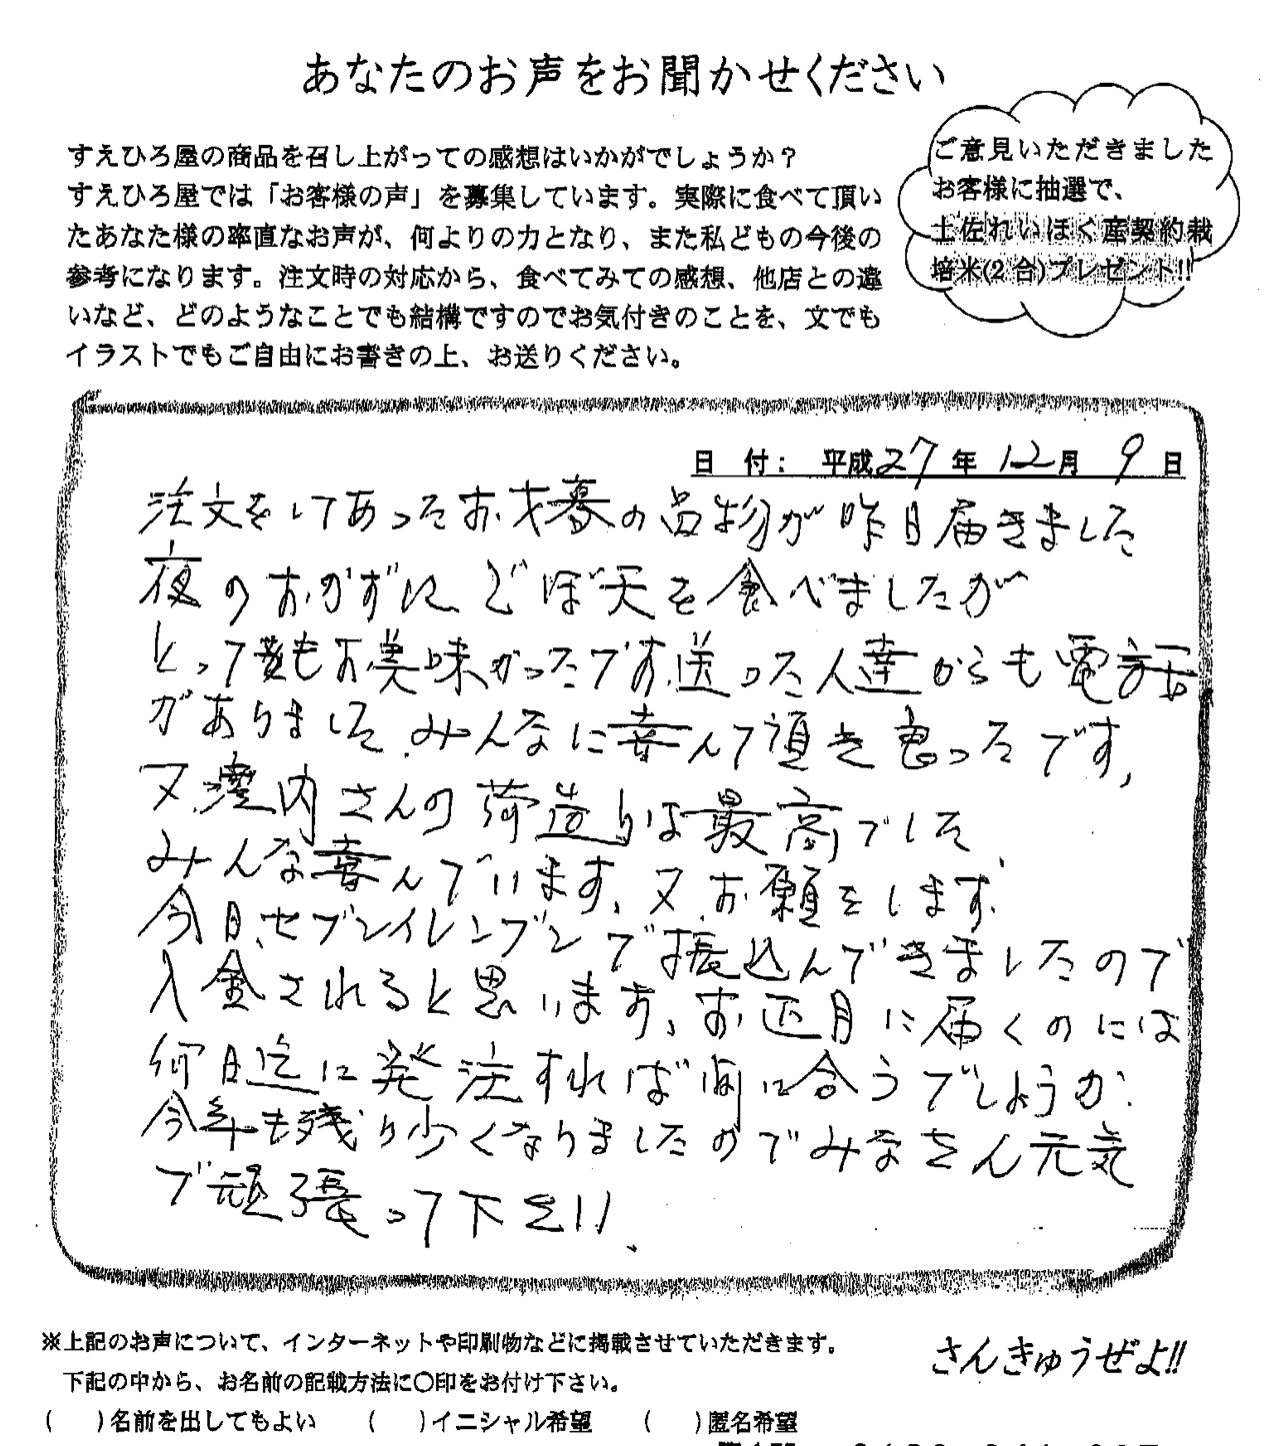 あなたのお声をお聞かせください
すえひろ屋の商品を召し上がっての感想はいかがでしょうか？
すえひろ屋では「お客様の声」を募集しています。実際に食べて頂い
たあなた様の率直なお声が、何よりの力となり、また私どもの今後の
参考になります。注文時の対応から、食べてみての感想、他店との違
いなど、どのようなことでも結構ですのでお気付きのことを、文でも
イラストでもご自由にお書きの上、お送りください。
ご意見いただきました
お客様に抽選で、
土佐れいほく産契約栽
培米(2合)プレゼント!!
日 付： 平成27年 12月 9日
注文をしてあったお才暮の品物が昨日届きました
夜のおかずに、どぼ天を食べましたが
とっても美味かったです。送った人達からも電話
がありました。みんなに喜んで頂き良ったです。
又、窪内さんの荷造りは最高でした
みんな喜んでいます。又お願をします。
今日、セブンイレンブンで振込んできましたので
入金されると思います。お正月に届くのには
何日迄に発注すれば間に合うでしょうか。
今年も残り少くなりましたのでみなさん元気
で頑張って下さい。
※上記のお声について、インターネットや印刷物などに掲載させていただきます。
下記の中から、お名前の記載方法に〇印をお付け下さい。
(　)名前を出してもよい　(　)イニシャル希望　(　)匿名希望
さんきゅうぜよ!!